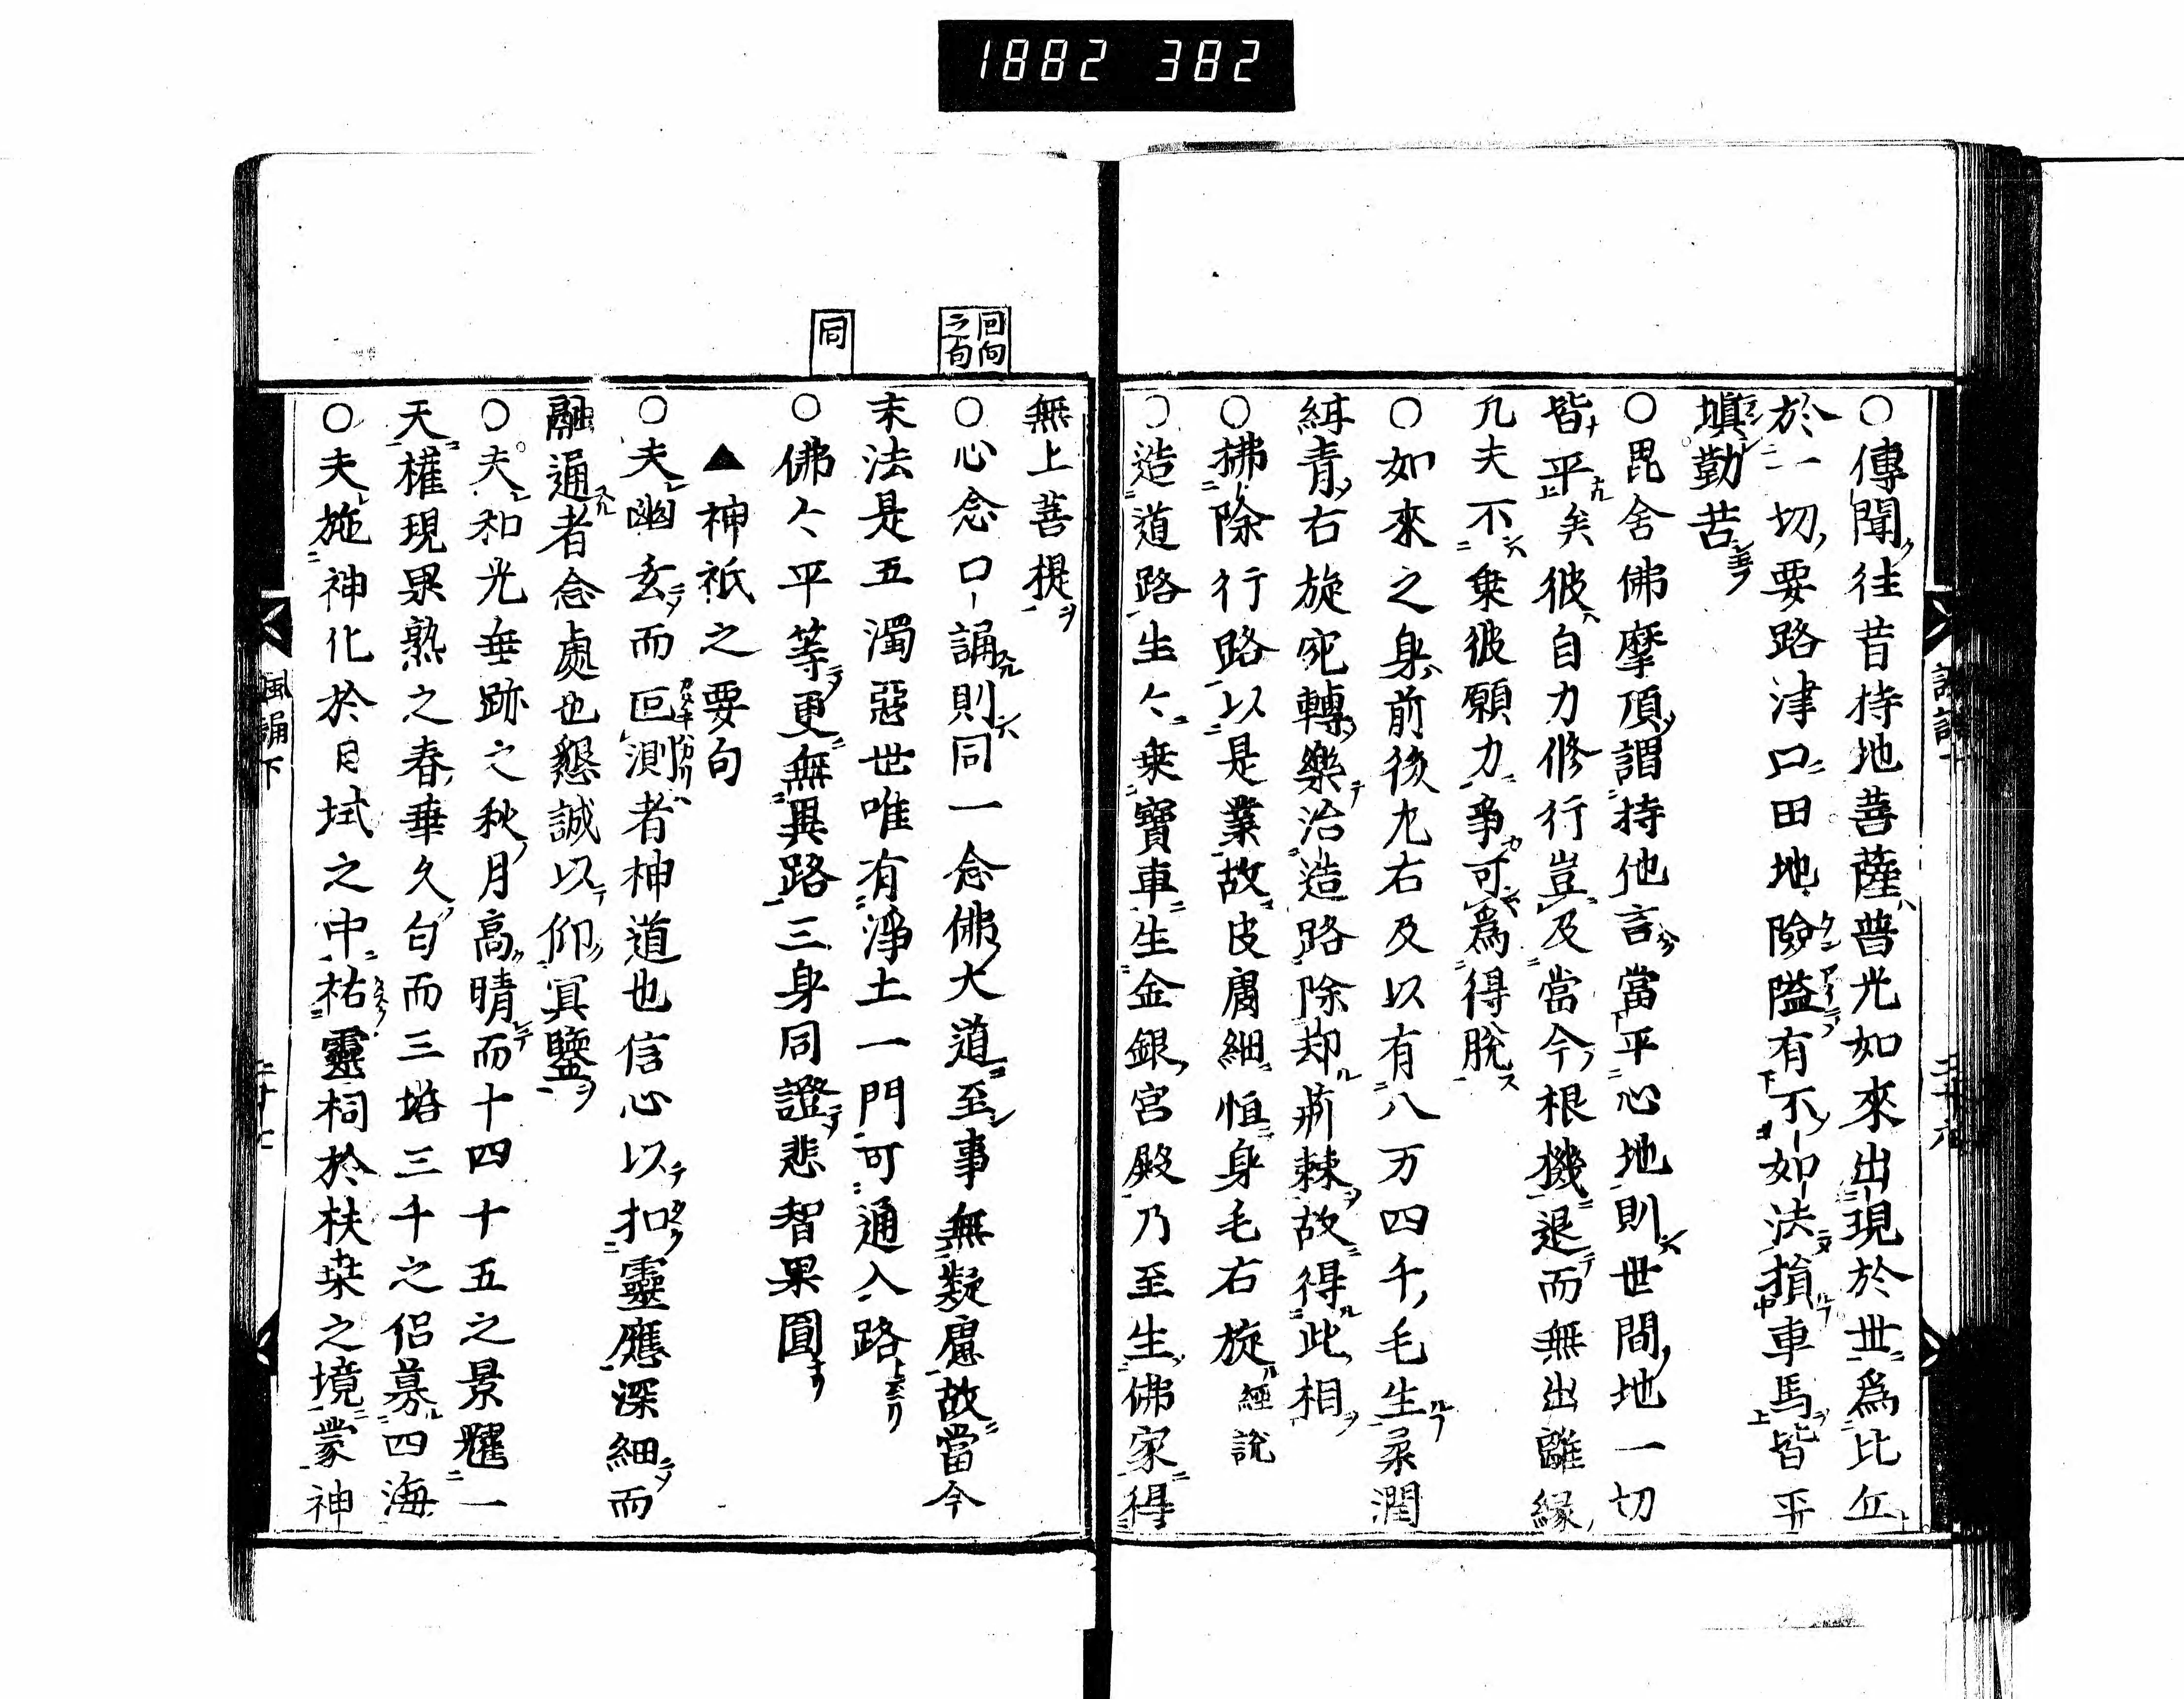 1882 382
○傳聞往昔持地菩薩普光如來出現於世爲比丘
於一切要路津口田地險隘有不如法損車馬皆平
塡勤苦
○毘舍佛摩頂謂持地言當平心地則世間地一切
皆平矣彼自力修行豈及當今根機退而無出離縁
凡夫不乗彼願力爭可爲得脫
○如來之身前後左右及以有八万四千毛生柔潤
紺青右旋宛轉樂治造路除却荊棘故得此相
○拂除行路以是業故皮膚細恒身毛右旋經說
○造道路生々乗寶車生金銀宮殿乃至生佛家得
無上菩提
回向之句
○心念口誦則同一念佛大道至事無疑慮故當今
末法是五濁惡世唯有淨土一門可通入路
同
○佛々平等更無異路三身同證悲智果圓
▲神祇之要句
○夫幽玄而叵測者神道也信心以扣靈應深細而
融通者念處也懇誠以仰冥鑒
○夫和光垂跡之秋月高晴而十四十五之景耀一
天權現果熟之春華久匂而三塔三千之侶募四海
○夫施神化於日域之中祐靈祠於扶桑之境蒙神
風誦下